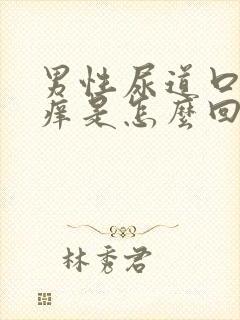 男性尿道口
痒是怎麼回
林秀君